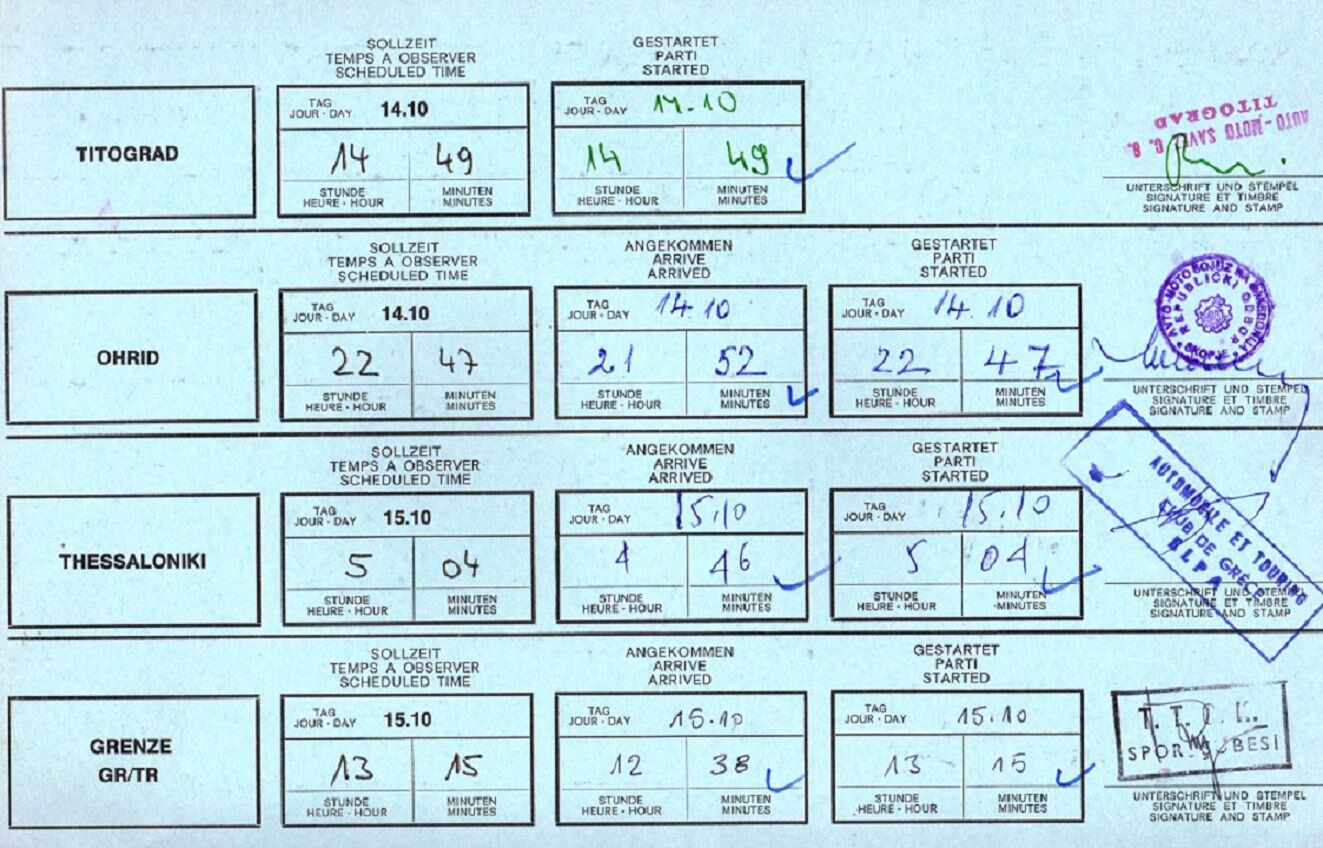 SOLLZEIT
TEMPS A OBSERVER
SCHEDULED TIME
GESTARTET
PARTI
STARTED
TITOGRAD
TAG
JOUR - DAY 14.10
14 49
STUNDE
HEURE - HOUR
MINUTEN
MINUTES
TAG
JOUR - DAY 14.10
14 49
STUNDE
HEURE - HOUR
MINUTEN
MINUTES
AUTO - MOTO SAVEZ
TITOGRAD
UNTERSCHRIFT UND STEMPEL
SIGNATURE ET TIMBRE
SIGNATURE AND STAMP
SOLLZEIT
TEMPS A OBSERVER
SCHEDULED TIME
ANGEKOMMEN
ARRIVE
ARRIVED
GESTARTET
PARTI
STARTED
OHRID
TAG
JOUR - DAY 14.10
22 47
STUNDE
HEURE - HOUR
MINUTEN
MINUTES
TAG
JOUR - DAY 14.10
21 52
STUNDE
HEURE - HOUR
MINUTEN
MINUTES
TAG
JOUR - DAY 14.10
22 47
STUNDE
HEURE - HOUR
MINUTEN
MINUTES
REPUBLIČKI ODBOR
SKOPJE
UNTERSCHRIFT UND STEMPEL
SIGNATURE ET TIMBRE
SIGNATURE AND STAMP
SOLLZEIT
TEMPS A OBSERVER
SCHEDULED TIME
ANGEKOMMEN
ARRIVE
ARRIVED
GESTARTET
PARTI
STARTED
THESSALONIKI
TAG
JOUR - DAY 15.10
5 04
STUNDE
HEURE - HOUR
MINUTEN
MINUTES
TAG
JOUR - DAY 15.10
4 46
STUNDE
HEURE - HOUR
MINUTEN
MINUTES
TAG
JOUR - DAY 15.10
5 04
STUNDE
HEURE - HOUR
MINUTEN
MINUTES
AUTOMOBILE ET TOURING
CLUB DE GRECE
ELPA
UNTERSCHRIFT UND STEMPEL
SIGNATURE ET TIMBRE
SIGNATURE AND STAMP
SOLLZEIT
TEMPS A OBSERVER
SCHEDULED TIME
ANGEKOMMEN
ARRIVE
ARRIVED
GESTARTET
PARTI
STARTED
GRENZE
GR/TR
TAG
JOUR - DAY 15.10
13 15
STUNDE
HEURE - HOUR
MINUTEN
MINUTES
TAG
JOUR - DAY 15.10
12 38
STUNDE
HEURE - HOUR
MINUTEN
MINUTES
TAG
JOUR - DAY 15.10
13 15
STUNDE
HEURE - HOUR
MINUTEN
MINUTES
UNTERSCHRIFT UND STEMPEL
SIGNATURE ET TIMBRE
SIGNATURE AND STAMP